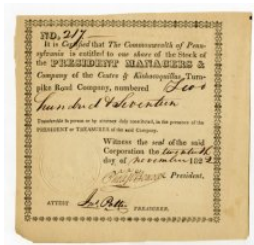 NO. 217
It is Certified that The Commonwealth of Penn-
sylvania is entitled to one share of the Stock of
the PRESIDENT MANAGERS &
Company of the Centre & Kishacoquillas Turn-
pike Road Company, numbered Two
hundred & Seventeen
Transferable in person or by attorney duly constituted, in the presence of the
PRESIDENT or TREASURER of the said Company.
Witness the seal of the said
Corporation the twentieth
day of november 1822
President.
ATTEST Jas. Potter TREASURER.